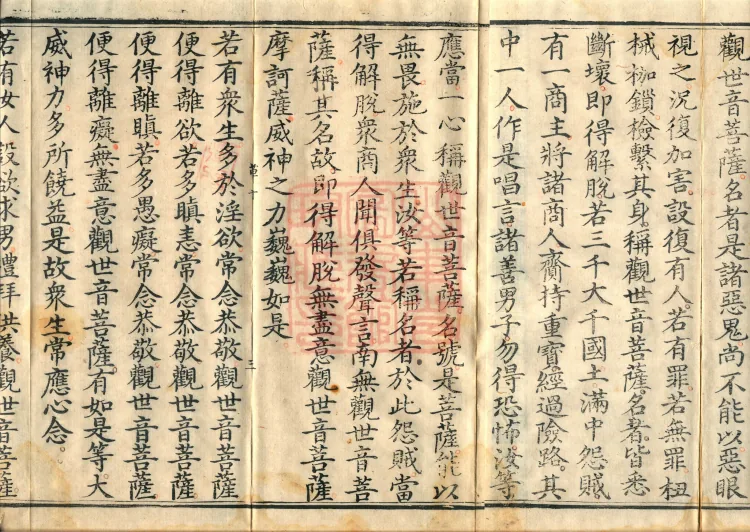 觀世音菩薩名者是諸惡鬼尚不能以惡眼
視之況復加害設復有人若有罪若無罪杻
械枷鎖檢繫其身稱觀世音菩薩名者皆悉
斷壞即得解脫若三千大千國土滿中怨賊
有一商主將諸商人齎持重寶經過險路其
中一人作是唱言諸善男子勿得恐怖汝等
應當一心稱觀世音菩薩名號是菩薩能以
無畏施於衆生汝等若稱名者於此怨賊當
得解脫衆商人聞俱發聲言南無觀世音菩
薩稱其名故即得解脫無盡意觀世音菩薩
摩訶薩威神之力巍巍如是
若有衆生多於淫欲常念恭敬觀世音菩薩
便得離欲若多瞋恚常念恭敬觀世音菩薩
便得離瞋若多愚癡常念恭敬觀世音菩薩
便得離癡無盡意觀世音菩薩有如是等大
威神力多所饒益是故衆生常應心念
若有女人設欲求男禮拜供養觀世音菩薩
三